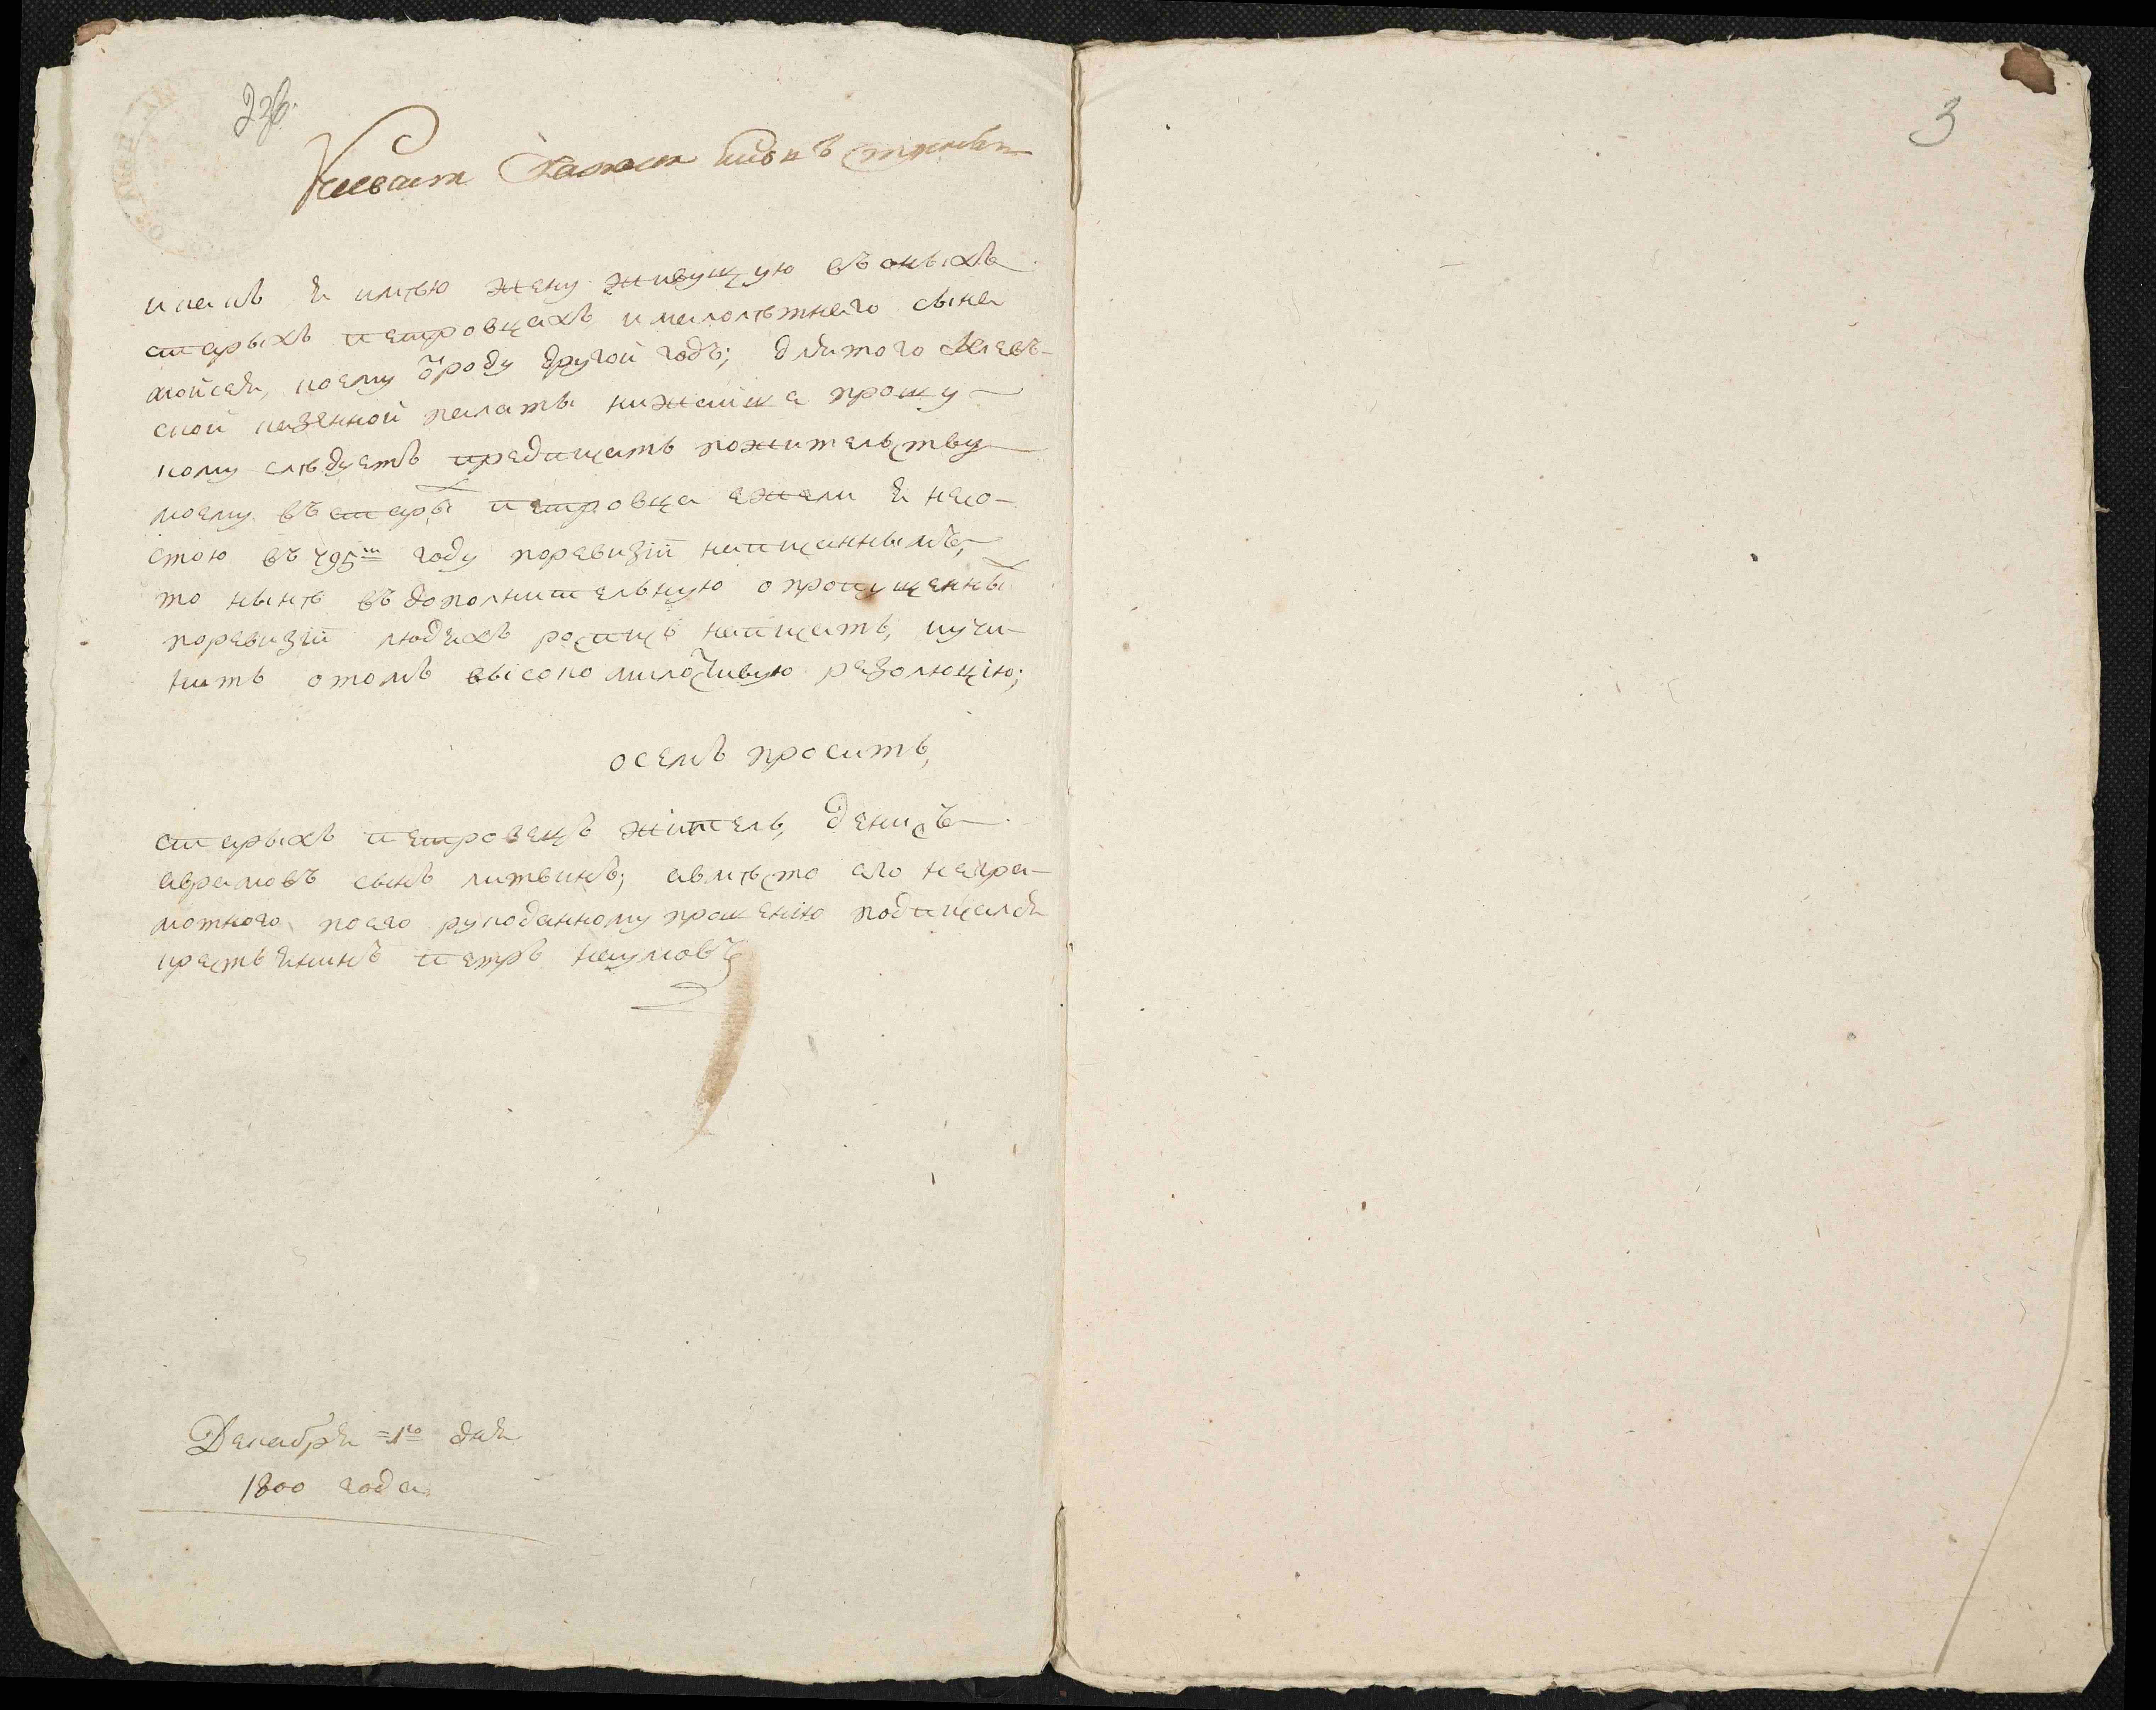 2об.
и какъ я имѣю жену живущую въ оныхъ
старыхъ петровцахъ и малолѣтнего сына
мойсея, коему ѿроду другой годъ; для того Киевъ-
ской казенной палаты нижайше прошу
кому слѣдуетъ предписать пожительству
моему въ старых петровца ежели я неко-
стою въ 795м году поревизіи написаннымъ,
то нынѣ въ дополнительную о пропущенных
поревизіи людяхъ роспись написать, иучи-
нить отомъ высокомилостивую резолюцію;
осемъ проситъ,
старыхъ петровецъ житель, Денисъ
аврамовъ сынъ литвинъ; авмѣсто его неგра-
мотного поего рукоданному прошенію подписался
крестьянинъ петръ наумовъ
Декабря =1го дня
1800 года
3